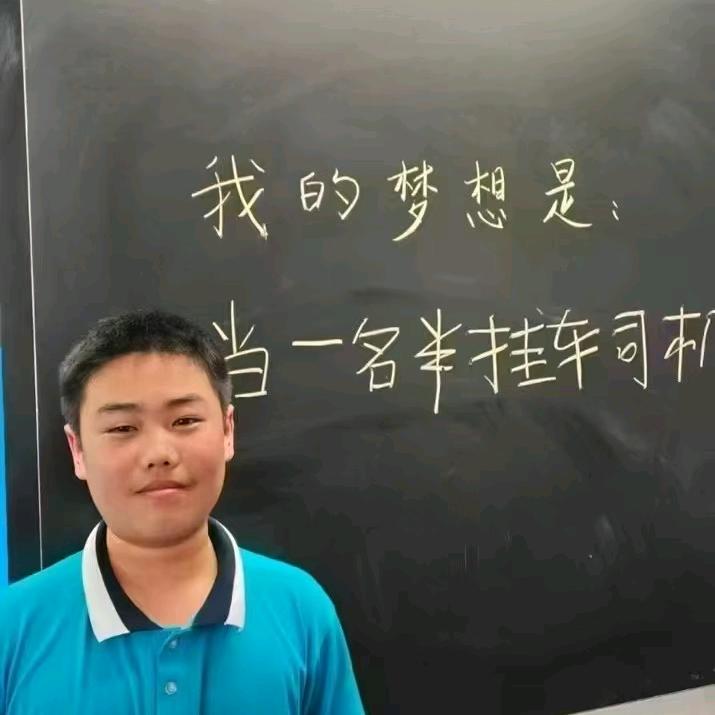 我的梦想是：
当一名半挂车司机